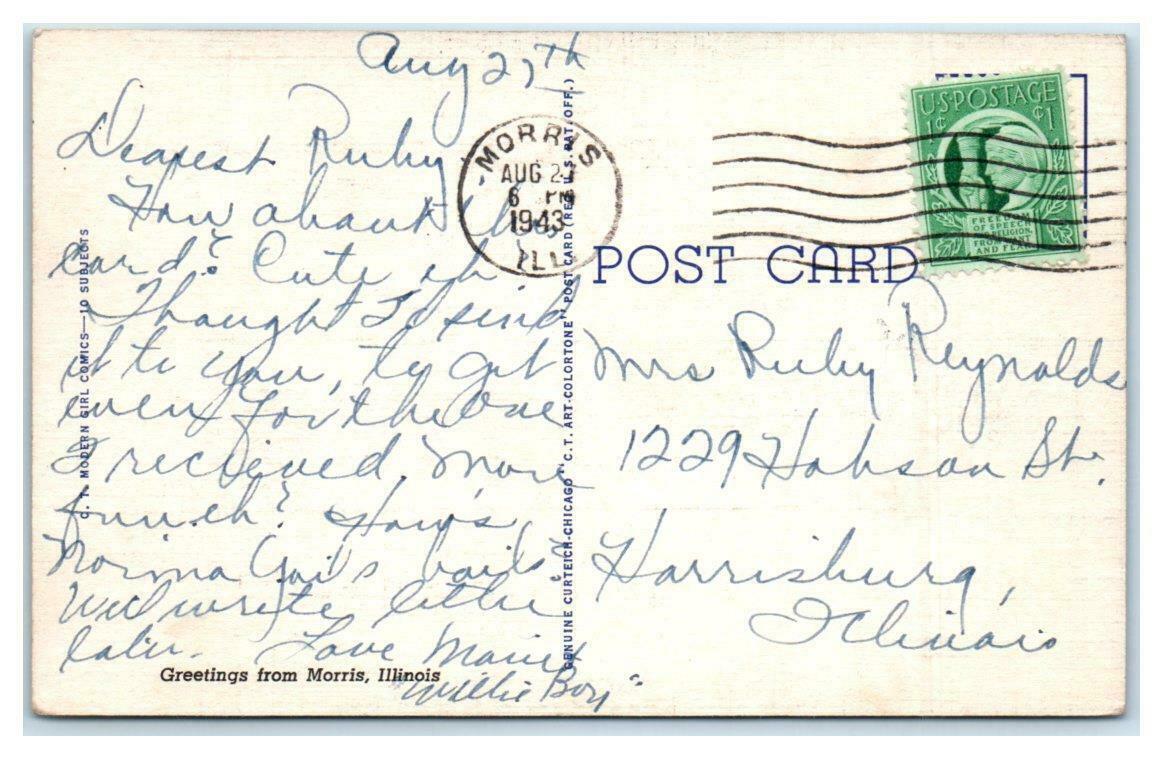 Aug 27th
Dearest Ruby
How about this
card? Cute eh
Thought I'd send
it to you, to get
even for the one
I recieved. More
fun. eh? How's
Norma Gail's boils?
Will write letter
later. Love
"Willie Boy"
Greetings from Morris, Illinois
C. T. MODERN GIRL COMICS—10 SUBJECTS
GENUINE CURTEICH-CHICAGO "C.T. ART-COLORTONE" POST CARD (REG. U.S. PAT. OFF.)
MORRIS
AUG 27
6 PM
1943
ILL.
U·S·POSTAGE
1¢ ¢1
FREEDOM
OF SPEECH
RELIGION,
FROM WANT
AND FEAR
POST CARD
Mrs Ruby Reynolds
1229 Hobson St.
Harrisburg,
Illinois